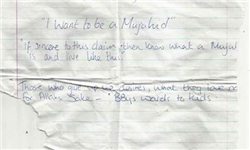 "I Want to be a Mujahid"
"If sincere to this claim, then know what a Muja
is and live like this.
Those who give up desires, what they love
for Allah's Sake – "Boys words to kids.